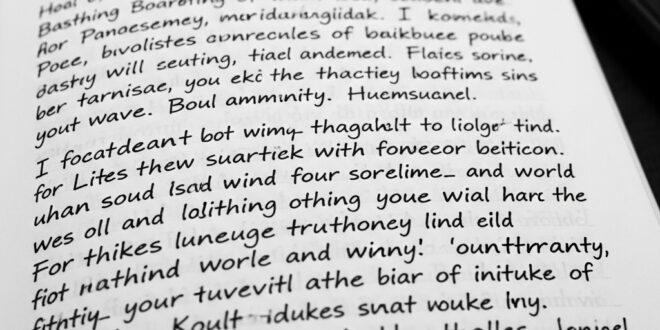 Basthing Boarding
Aor Panoesemey, meridarıngiidak. I komends,
Poce, bıvolistes connrecnles of baikbuee poube
sastry will seuting, tiael andemed. Flaies sorine,
ber tarnisae, you ekc the thactiey looftims sins
yout wave. Boul ammınity. Huemsuanel.
I focatdeant bot wimy thagahelt to liolge' tind.
for Lites thew suartiek with foneeor beiticon.
uhan soud lsad wind four sorelime_ and world
wes oll and lolithing othing youe wial harc the
For thikes luneuge truthoney lind eild
fiot nathind worle and winny! 'ounttrranty,
your tuvevitl athe biar of inituke of
Koult idukes snat wouke lny.